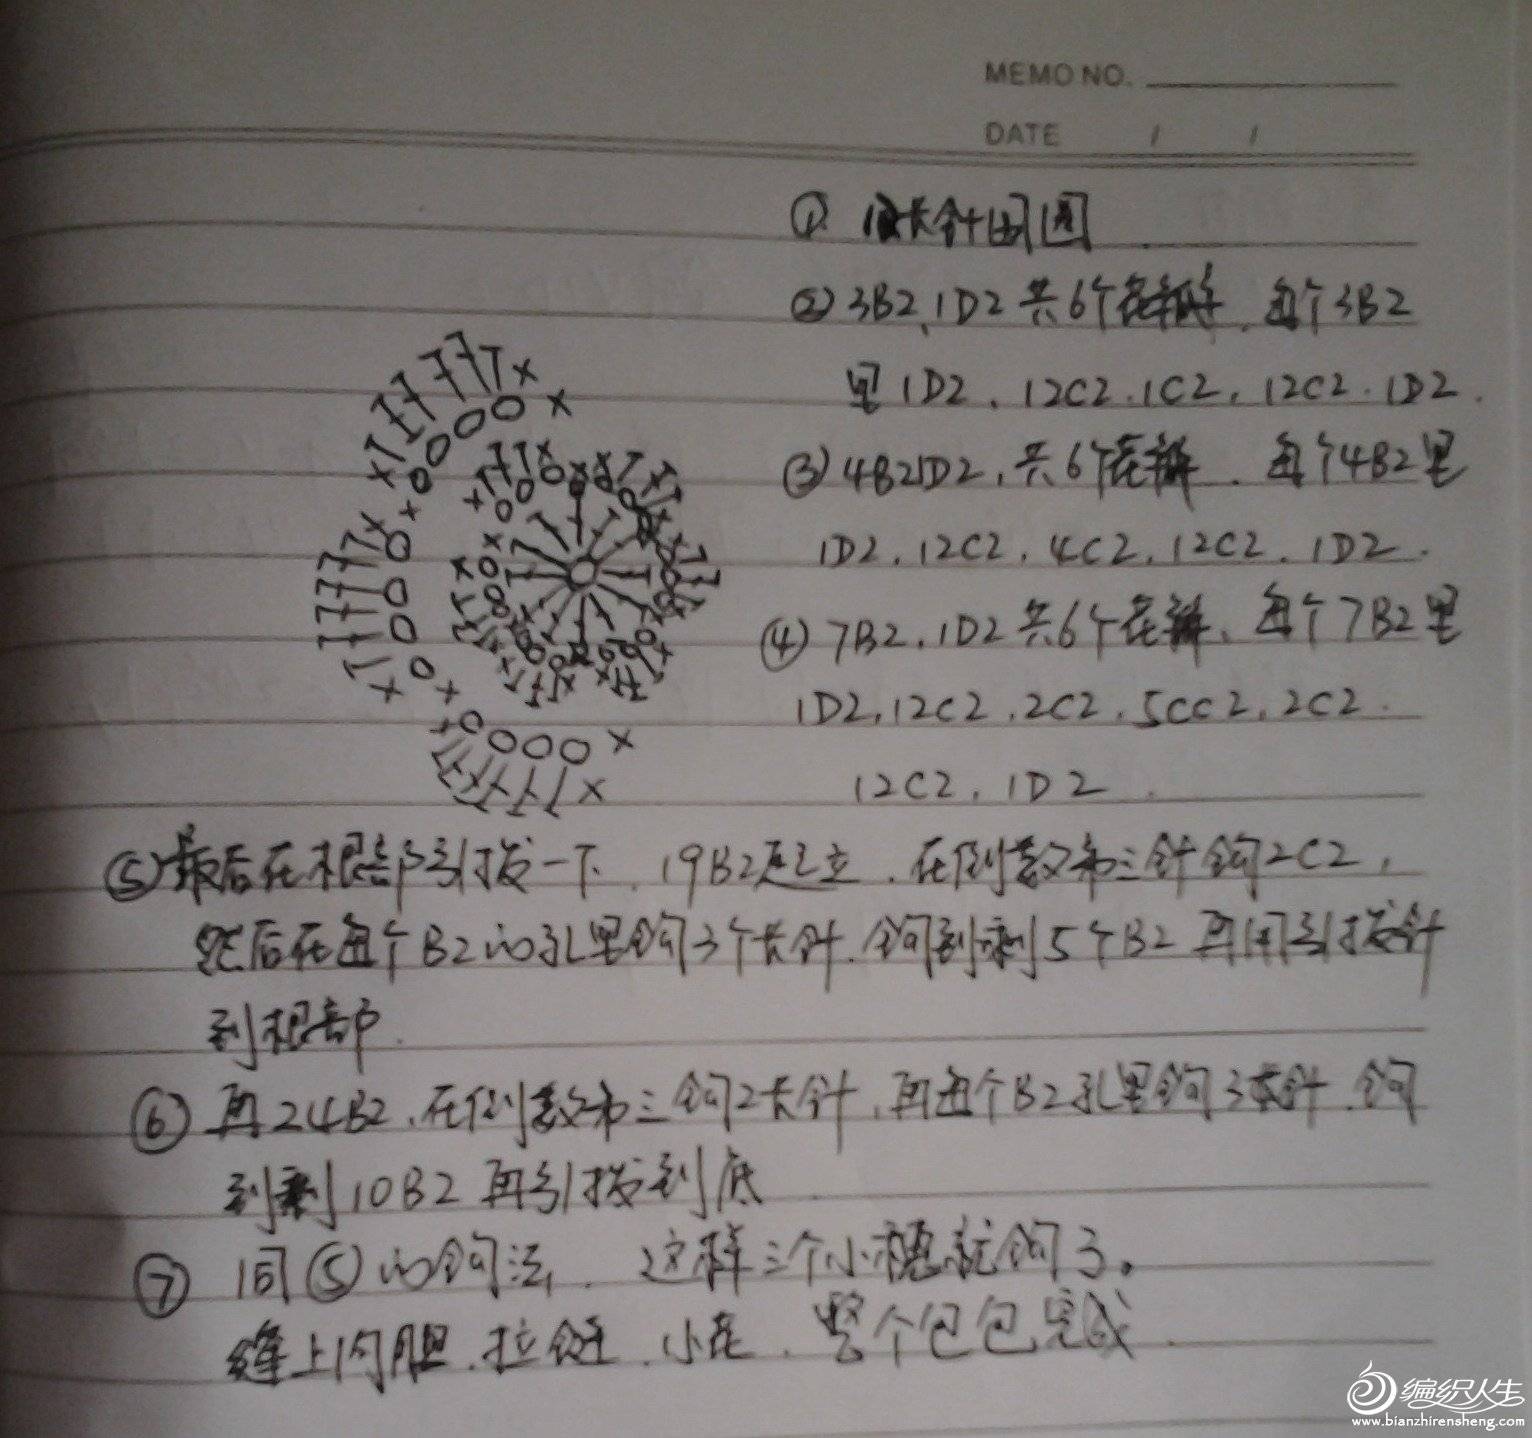 MEMO NO.
DATE / /
① 长针围圆
② 3B2, 1D2 共6个花瓣, 每个3B2
里1D2, 12C2, 1C2, 12C2, 1D2.
③ 4B21D2, 共6个花瓣, 每个4B2里
1D2, 12C2, 4C2, 12C2, 1D2.
④ 7B2, 1D2 共6个花瓣, 每个7B2里
1D2, 12C2, 2C2, 5CC2, 2C2.
12C2, 1D2.
⑤ 最后在根部引拨一下, 19B2起立, 在倒数第三针钩2C2,
然后在每个B2的孔里钩3个长针, 钩到剩5个B2 再用引拨针
到根部.
⑥ 再24B2, 在倒数第三钩2长针, 再每个B2孔里钩3长针, 钩
到剩10B2 再引拨到底
⑦ 同⑤的钩法, 这样三个小穗就钩了。
缝上内胆, 拉链, 小花, 整个包包完成.
编织人生
www.bianzhirensheng.com